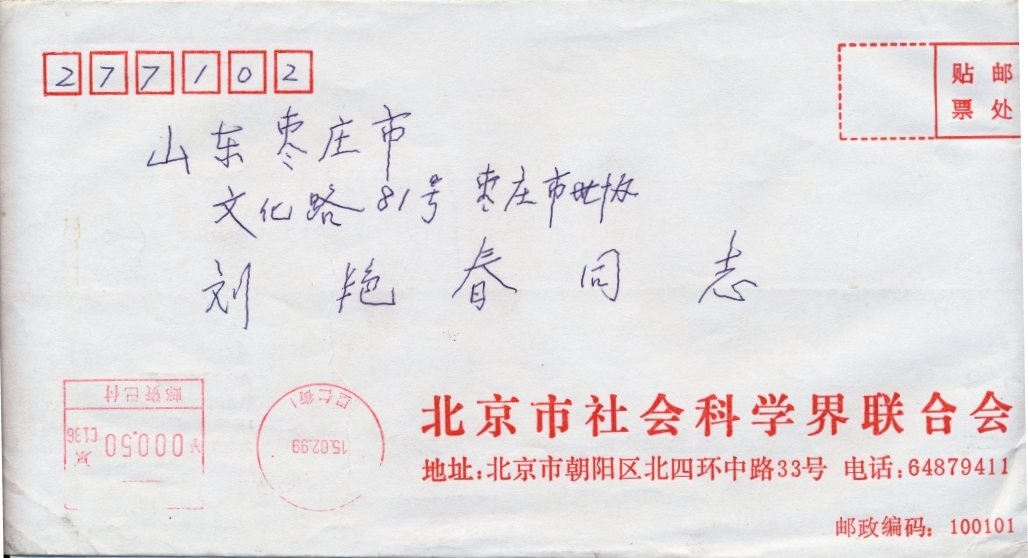 277102
贴邮
票处
山东枣庄市
文化路81号 枣庄市世协
刘艳春同志
邮资已付
¥000.50
京
C136
15.02.99
北京市社会科学界联合会
地址:北京市朝阳区北四环中路33号 电话:64879411
邮政编码: 100101